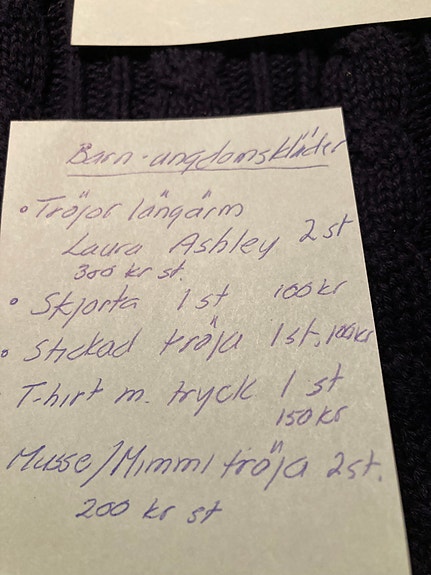 Barn-ungdomskläder
• Tröjor långärm
Laura Ashley 2 st
300 kr st.
• Skjorta 1 st 100 kr
• Stickad tröja 1 st, 100kr
• T-hirt m. tryck 1 st
150 kr
Musse/Mimmi tröja 2 st.
200 kr st